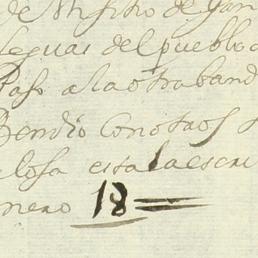 de Mi sitio de San
leguas del pueblo d
Paso a la otra band
Bendio Con otros
closa esta la escri
mero 18